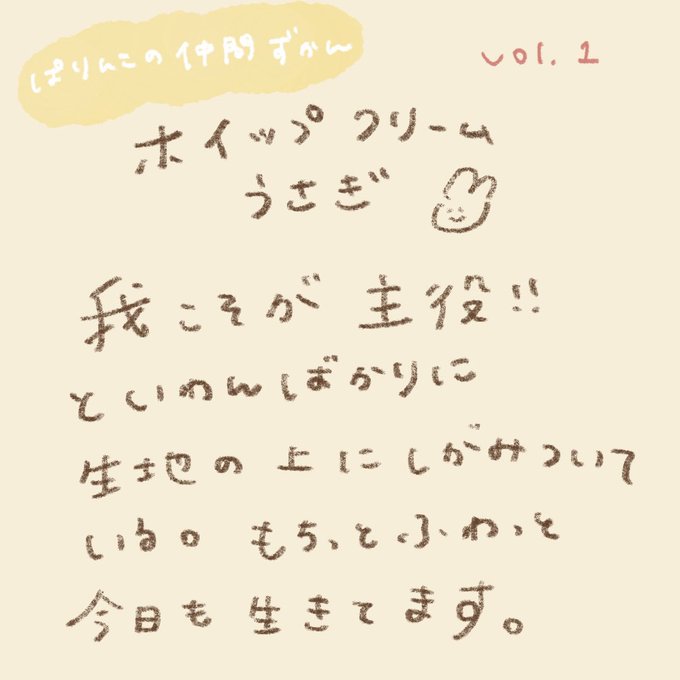 ぱりんこの仲間ずかん
vol.1
ホイップクリーム
うさぎ
我こそが主役!!
といわんばかりに
生地の上にしがみついて
いる。もちっとふわっと
今日も生きてます。